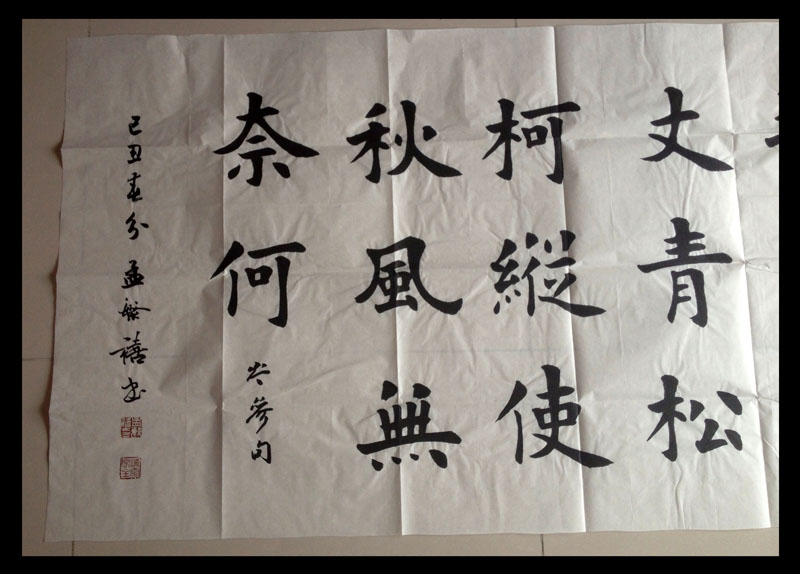 丈青松
柯縱使
秋風無
奈何
岑參句
己丑春分 孟繁禧书